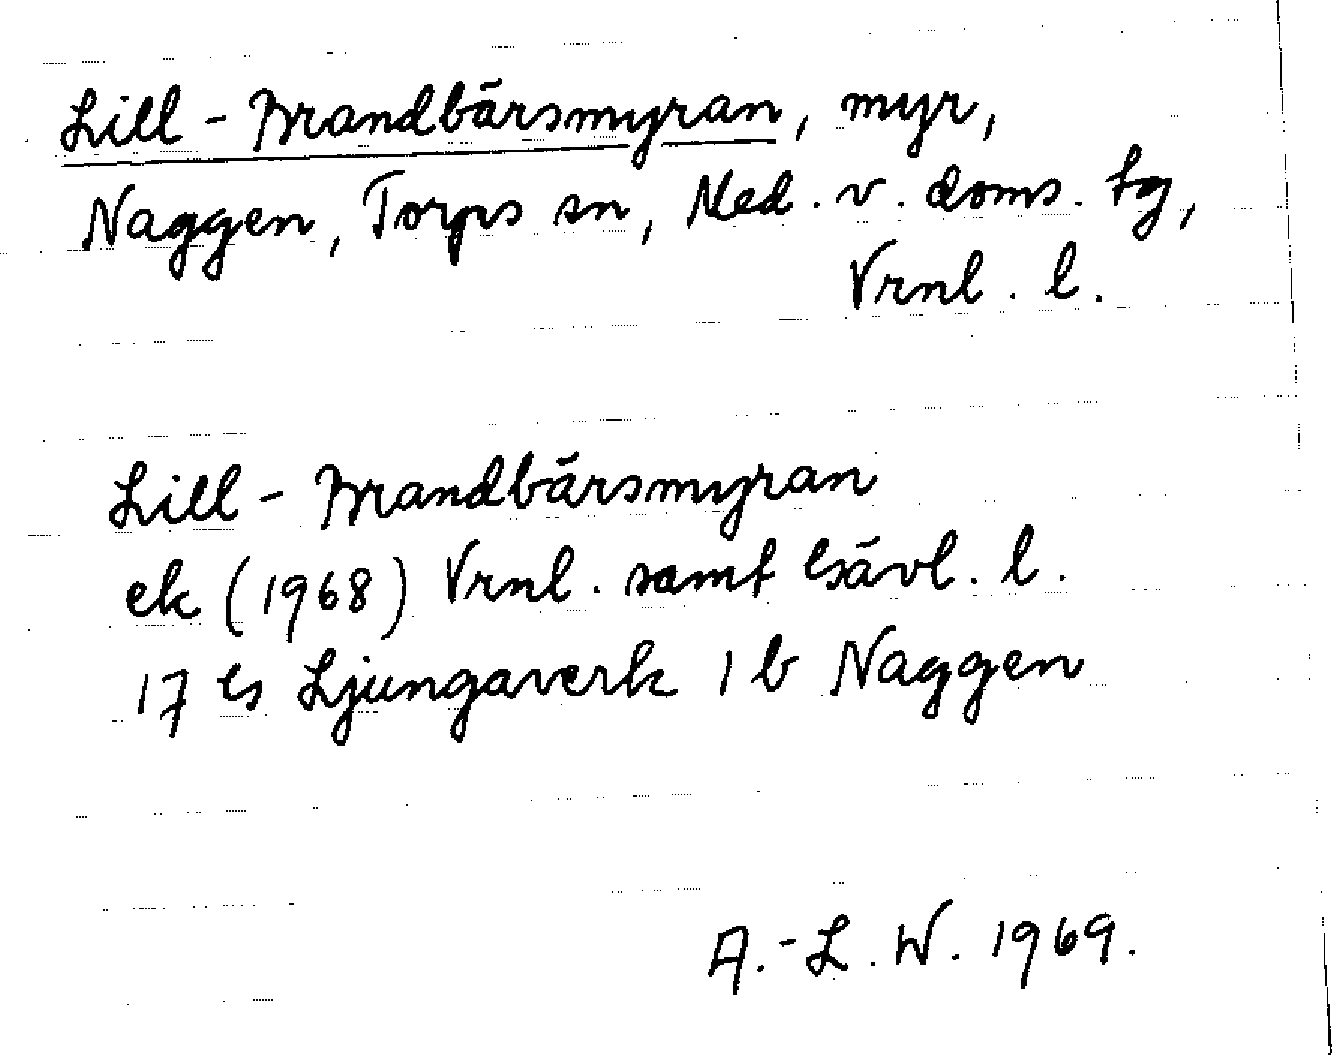 Lill-Brandbärsmyran, myr,
Naggen, Torps sn, Med. v. doms. tg,
Vrnl. l.
Lill-Brandbärsmyran
ek (1968) Vrnl. samt Gävl. l.
17 G Ljungaverk 1 b Naggen
A.-L. W. 1969.